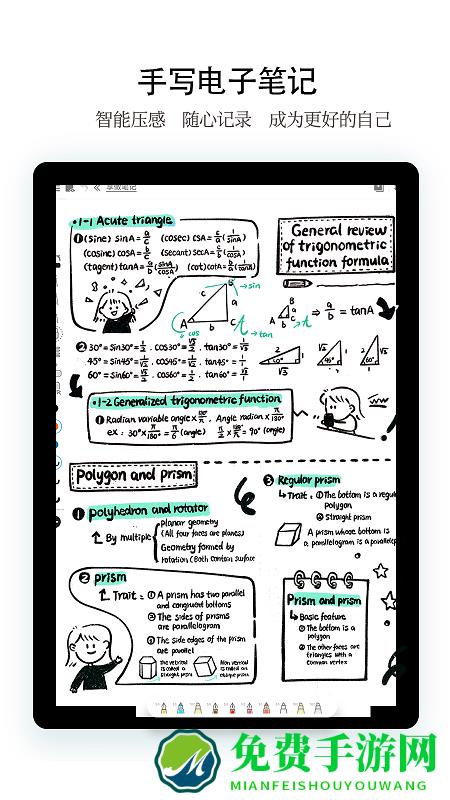 手写电子笔记
智能压感 随心记录 成为更好的自己
·1-1 Acute triangle
①(sine) sinA= a/c (cosec) csA= c/a (1/sinA)
(cosine) cosA= b/c (secant) secA= c/b (1/cosA)
(tagent) tanA= a/b (sinA/cosA) (cot) cotA= b/a (1/tanA)
General review
of trigonometric
function formula
c
B
→sin
a
A
b
C
cos
→tan
B
a
A
b
C
⇒ a/b = tanA
②30°=sin30°= 1/2 . cos30°= √3/2 . tan30°= 1/√3
45°=sin45°= 1/√2 . cos45°= 1/√2 . tan45°= 1
60°=sin60°= √3/2 . cos60°= 1/2 . tan60°= √3
·1-2 Generalized trigonometric function
①Radian variable angle× 180°/π . Angle radian× π/180°
ex: 30°× π/180° = π/6 (angle) π/2 × 180°/π = 90° (angle)
Polygon and prism
① polyhedron and rotator
By multiple
planar geometry
(All four faces are planes)
Geometry formed by
rotation (Both contain surface
③ Regular prism
Trait: ①The bottom is a regul
polygon
②Straight prism
A prism whose bottom is
a parallelogram is a parallelep
② prism
Trait: ①A prism has two parallel
and congruent bottoms
②The sides of prisms
are parallelogram
③The side edges of the prism
are parallel
The vertical
is called a
straight prism
Non vertical
is called an
oblique prism
Prism and prism
Basic feature
①The bottom is a
polygon
②The other faces are
triangles with a
common vertex
免费手游网
MIANFEISHOUYOUWANG